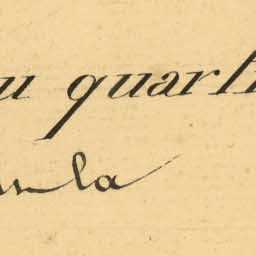 u quarti
la